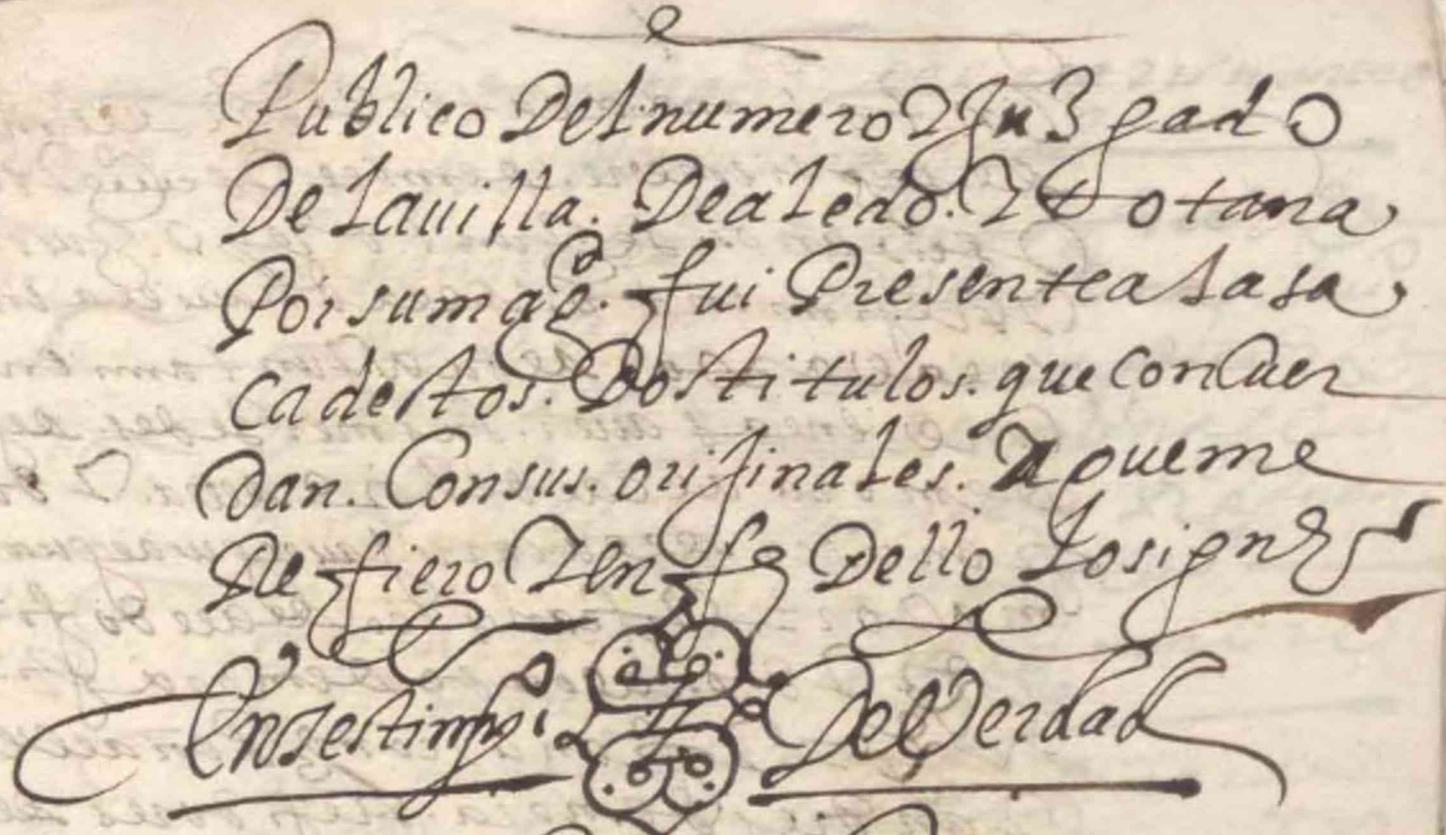 Publico Del numero Y Juzgado
De la uilla. De aledo. Y totana
Por su magd. fui Presente a la sa
ca destos. Dos titulos. que con Cuer
dan. Con sus. orijinales. A que me
Refiero Y en fe Dello lo signe
En testimoº De Verdad